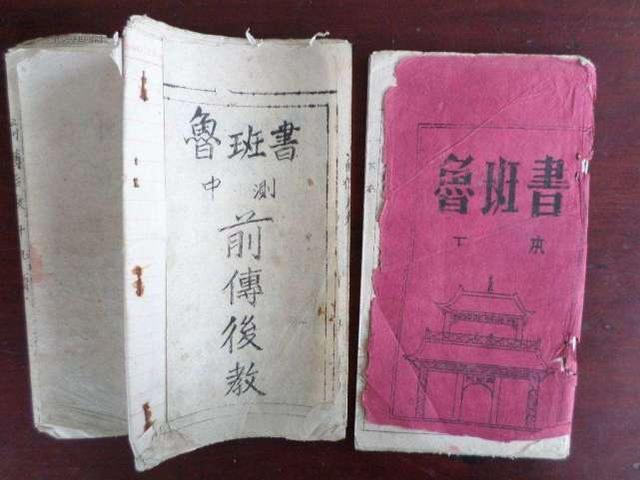 魯班書
中測
前傳後教
魯班書
下本